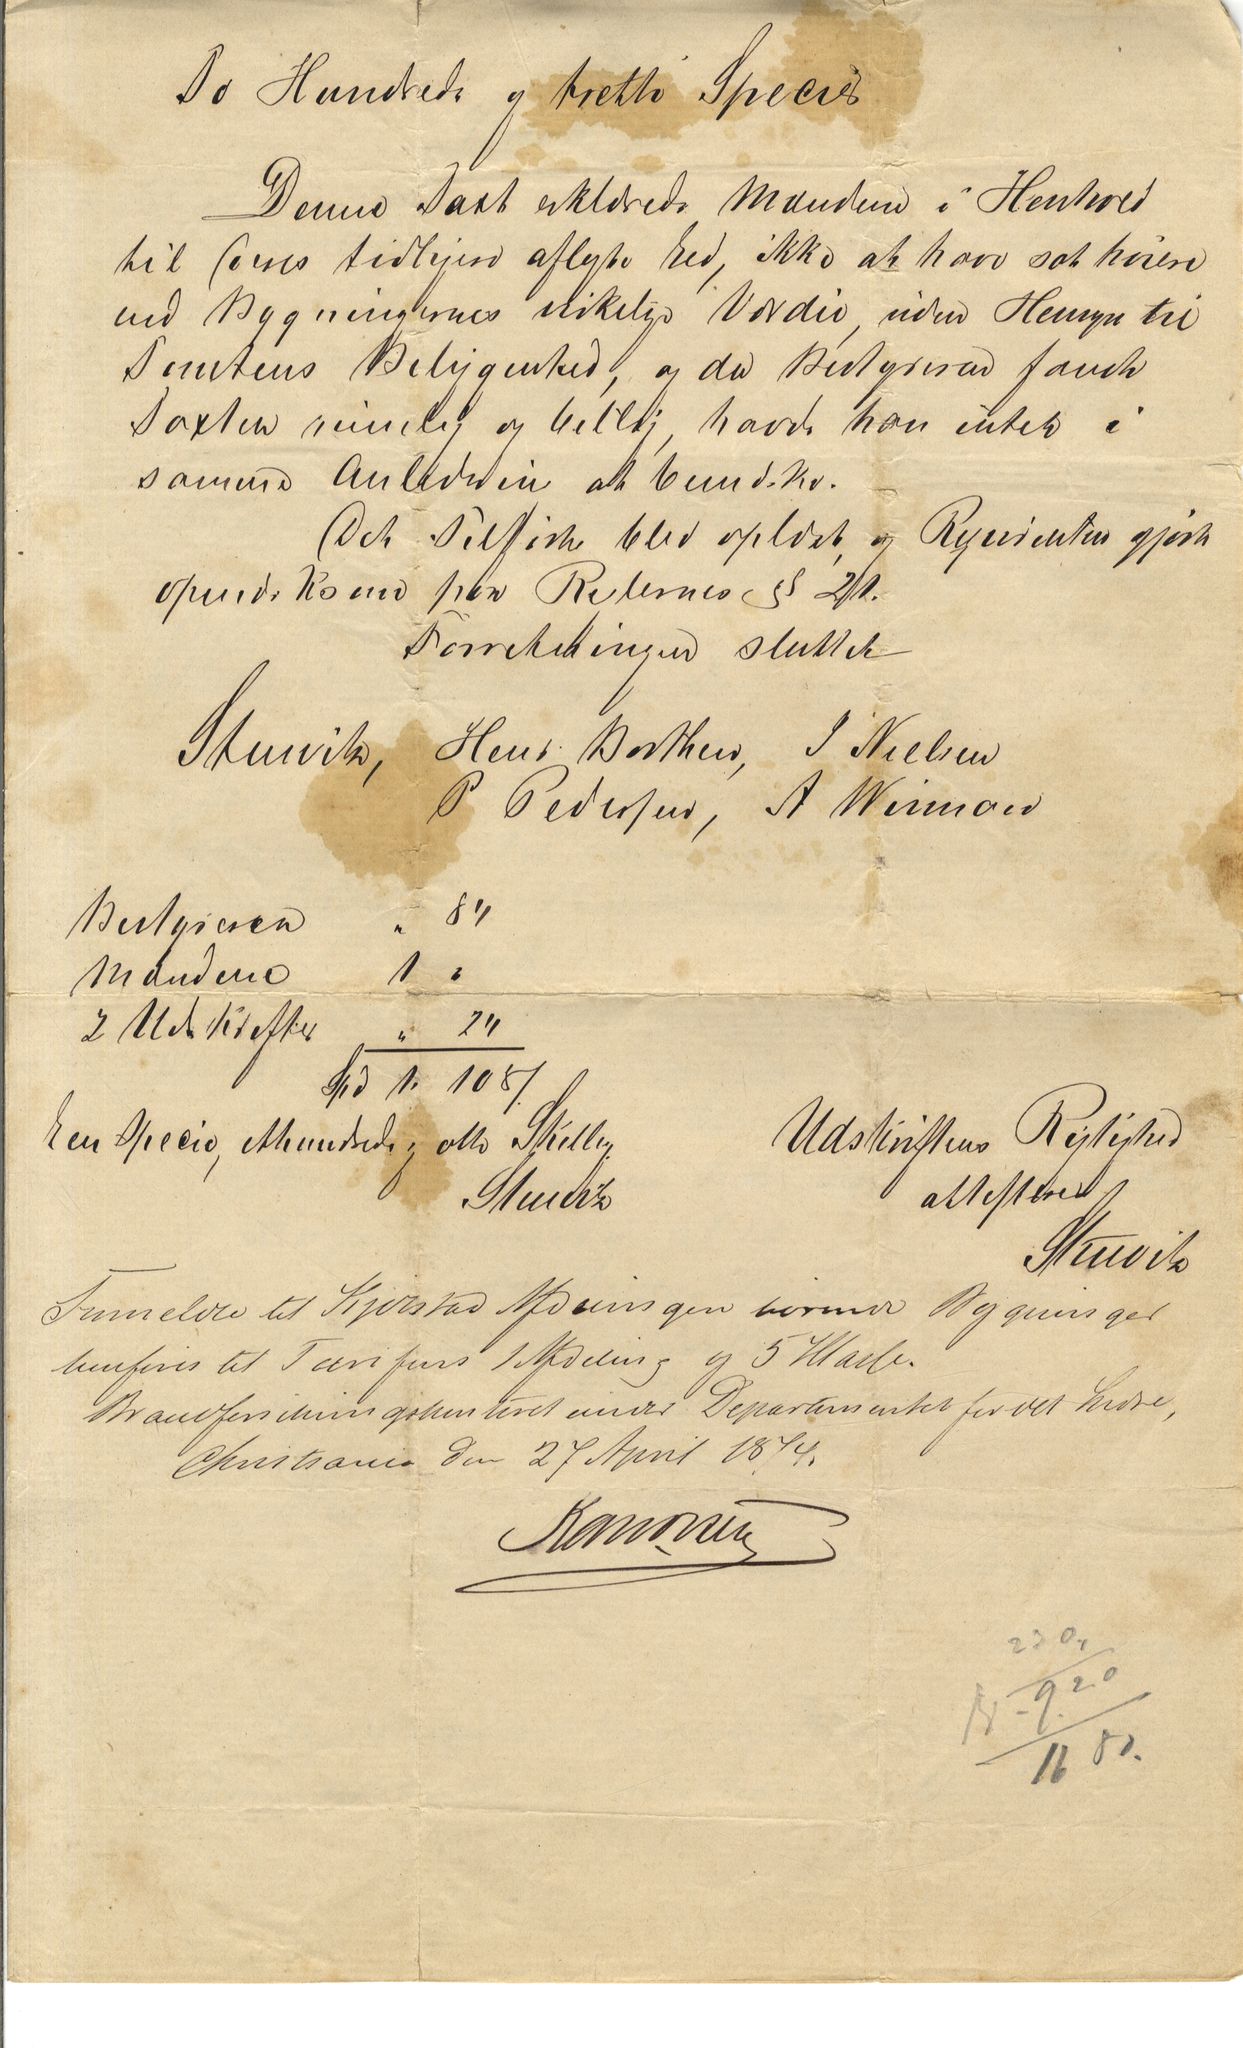 To Hundrede og tretti Species
Denne Taxt erklærede Mændene i Henhold
til deres tidligere aflagte Eed, ikke at have sat høiere
end Bygningernes virkelige Værdie, uden Hensyn til
Tomtens Beliggenhed, og da Bestyreren fandt
Taxten rimelig og billig, havde han intet i
samme Anledning at bemærke.
Det Tilførte blev oplæst, og Reqvirenten gjort
opmærksom paa Reglernes § 21.
Forretningen sluttet
Stuwitz, Henr. Borthen, I Nielsen
P Pedersen, A Winman
Bestyreren " 84
Mændene 1 "
2 Udskrifter " 24
Spd 1. 108/
Een Specie, et hundrede og otte Skilling. Udskriftens Rigtighed
Stuwitz attesterer
Stuwitz
Bygninger
henføres til Tarifens 1 Afdeling og 5 Klasse.
Brandforsikringskontoret under Departementet for det Indre,
Christiania den 27 April 1874.
230,
- 9.20
11 80.